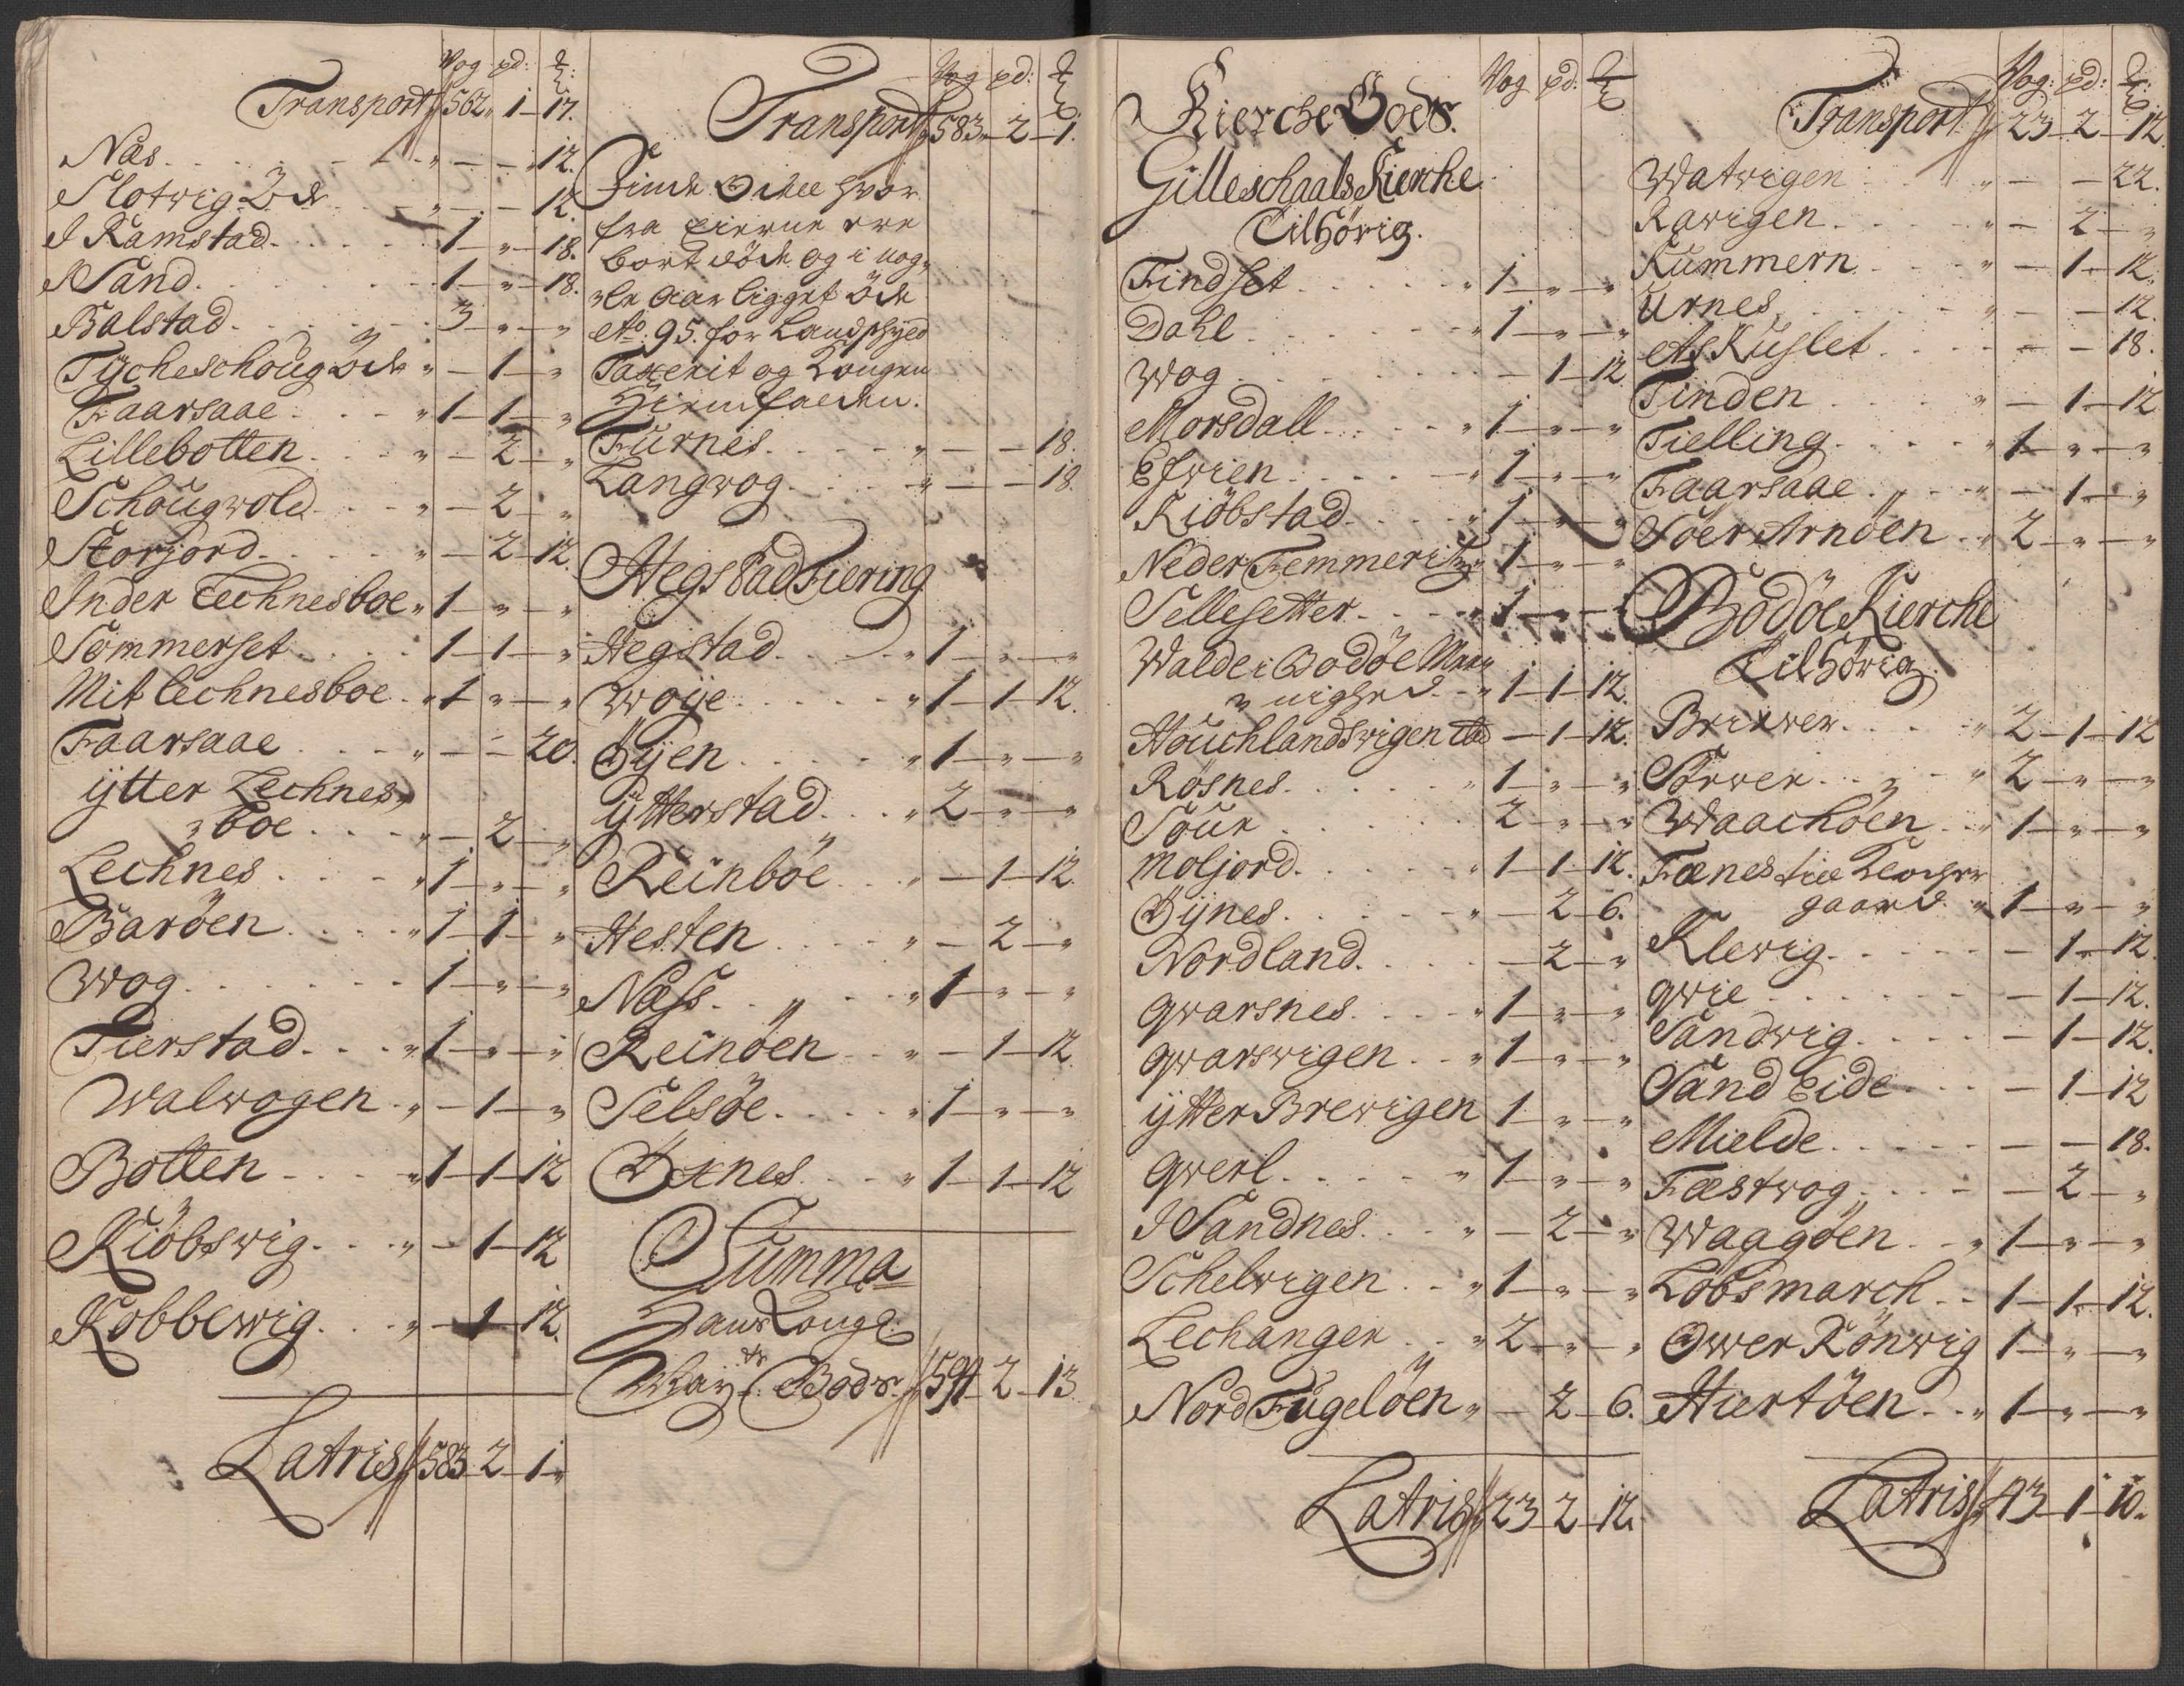 Vog pd: ℔:
Transport 562 „ 1 – 17.
Næs . . . „ – „ – 12.
Slotvig Öde . . „ – „ – 12.
I Ramstad . . . 1 – „ – 18.
I Sand . . . 1 – „ – 18.
Balstad . . . 3 – „ – „
Tycheschoug Öde „ – 1 – „
Faarsaae . . . „ 1 – 1 – „
Lillebotten . . . „ – 2 – „
Schougwold . . . „ – 2 – „
Storjord . . . „ – 2 – 12.
Inder Lechnesboe „ 1 – „ – „
Sommerset . . . 1 – 1 – „
Mit Lechnesboe . „ 1 – „ – „
Faarsaae . . . „ – – 20.
ÿtter Lechnes„
„boe . . . „ – 2 – „
Lechnes . . . „ 1 – „ – „
Baröen . . . „ 1 – 1 – „
Wog . . . 1 – „ – „
Fierstad . . . „ 1 – „ – „
Walwogen . „ – 1 – „
Botten . . . „ 1 – 1 – 12
Kiöbswig . . . „ – 1 – 12
Kobbewig . . . „ – 1 – 12.
Latris 583 – 2 – 1 „
Vog pd: ℔
Transport 583 – 2 – 1.
Öde hvor
fra Eierne ere
bort döde og i nog„
„le Aar ligget Öde
Ao. 95. for Landschyld
Taxerit og Kongen
Furnes . . . „ – – 18.
Langwog . . . „ – – 18.
Hegstad Fiering
Hegstad . . . „ 1 – „ – „
Woÿe . . . „ 1 – 1 – 12.
Öÿen . . . „ 1 – „ – „
ÿtterstad . . . „ 2 – „ – „
Reinböe . . . „ – 1 – 12.
Hesten . . . „ – 2 – „
Næss . . . „ 1 – „ – „
Reinöen . . . „ – 1 – 12.
Selsöe . . . „ 1 – „ – „
Öxnes . . . „ 1 – 1 – 12
Summa
Hans Kongl:
Maytt: Gods 594 – 2 – 13.
Vog pd: ℔
Kierche Gods.
Gilleschaals Kierche
Tilhörig.
Findset . . . „ 1 – „ – „
Dahl . . . „ 1 – „ – „
Wog . . . – 1 – 12.
Morsdall . . . „ 1 – „ – „
Efwien . . . „ 1 – „ – „
Kiöbstad . . . „ 1 – „ – „
Neder Femmeris „ 1 – „ – „
Sellesetter . . . „ 1 – „ –
Walde i Bodöe Man„
„nighed . „ 1 – 1 – 12.
Houchlandswigen – 1 – 12.
Rösnes . . . „ 1 – „ – „
Söur . . . 2 – „ – „
Moljord . . . „ 1 – 1 – 12.
Öÿnes . . . „ – 2 – 6.
Nordland . . . – 2 – „
Qwarsnes . . . „ 1 – „ – „
Qwarswigen . . „ 1 – „ – „
ÿtter Brewigen 1 – „ – „
Qwerl . . . „ 1 – „ – „
I Sandnes . . . „ – 2 – „
Schelwigen . . „ 1 – „ – „
Lechanger . . „ 2 – „ – „
Nord Fugelöen „ – 2 – 6.
Latris 23 – 2 – 12.
Vog: pd: ℔:
Transport 23 – 2 – 12
Watwigen . . . „ – – 22.
Rawigen . . . „ – 2 – „
Kummern . . . „ – 1 – 12.
Urnes . . . „ – – 12.
As Kuslet . . . – – 18.
Tinden . . . „ – 1 – 12
Tielling . . . „ 1 – „ – „
Faarsaae . . . „ – 1 – „
Söer Arnöen . . „ 2 – „ – „
Bodöe Kierche
Tilhörig
Brixwer . . . „ 2 – 1 – 12
Sörwer . . . „ 2 – „ – „
Waachöen . . „ 1 – „ – „
Fænes til Klocher
gaard . „ 1 – „ – „
Klewig . . . – 1 – 12.
Qwie . . . – 1 – 12.
Sandwig . . . – 1 – 12.
Sand Eide . . . – 1 – 12
Mielde . . . – – 18.
Fæstwog . . . – 2 – „
Waagöen . . „ 1 – „ – „
Löbsmarch . . 1 – 1 – 12.
Ower Rönwig 1 – „ – „
Hiertöen . . „ 1 – „ – „
Latris 43 – 1 – 10.